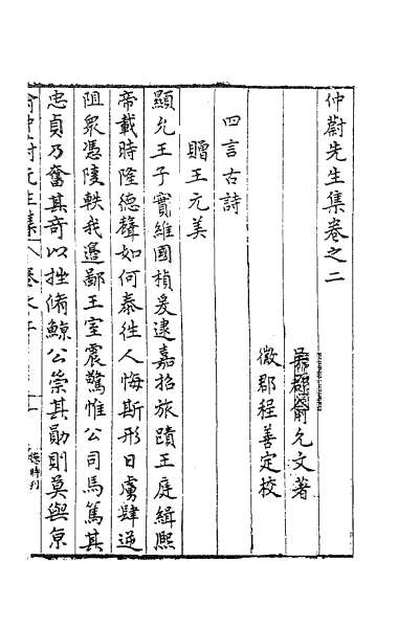 仲蔚先生集卷之二
吳郡俞允文著
徽郡程善定校
四言古詩
贈王元美
顯允王子實維國楨爰逮嘉招旅蹟王庭緝熙
帝載時隆德聲如何泰往人悔斯形日虜肆逆
阻衆憑陵軼我邊鄙王室震驚惟公司馬篤其
忠貞乃奮其奇以挫脩鯨公崇其勛則莫與京